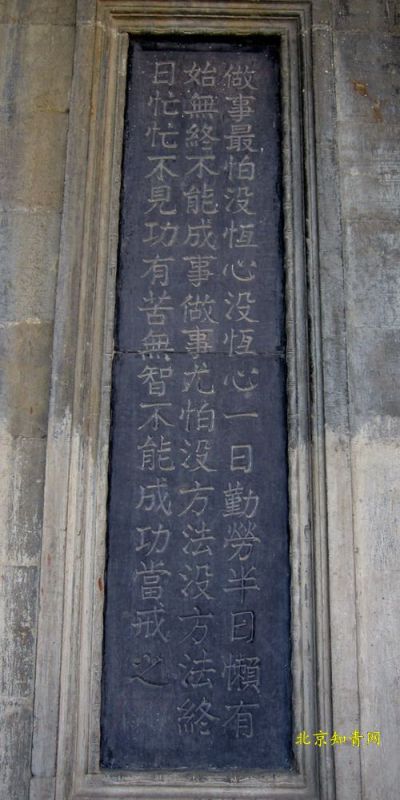 做事最怕没恆心没恆心一日勤勞半日懶有
始無終不能成事做事尤怕没方法没方法終
日忙忙不見功有苦無智不能成功當戒之
北京知青网